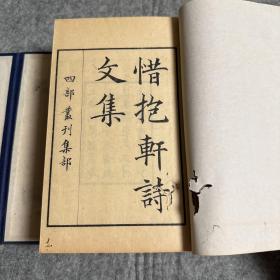 惜抱軒詩
文集
四部叢刊集部